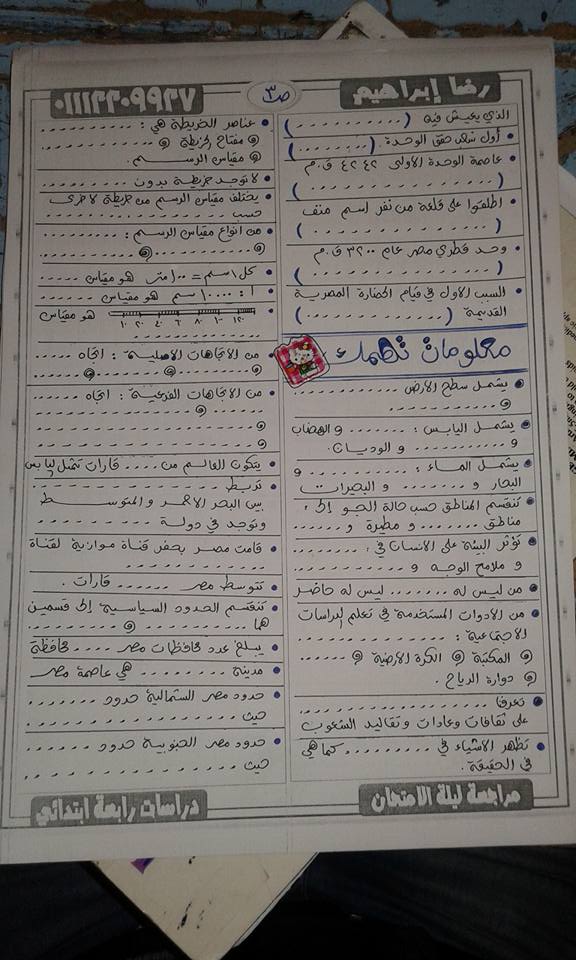 رضا إبراهيم
ص٣
٠١١١٢٢٠٩٩٢٧
الذي يعيش فيه (..........)
• أول شهد حقق الوحدة. (........)
• عاصمة الوحدة الاولى ٤٢٤٢ ق.م
(..............)
• اطلقوا على قلعة من نفر اسم منف
(..............)
• وحد قطري مصر عام ٣٢٠٠ ق.م
(..............)
• السبب الاول في قيام الحضارة المصرية
القديمة (..............)
معلومات تهمك
• يشمل سطح الأرض ..........
و ..........
• يشمل اليابس: ........ و الهضاب
و .......... و الوديان.
• يشمل الماء: .......... و
البحار و ........ و البحيرات
• تنقسم المناطق حسب حالة الجو إلى:
مناطق ........ و مطيرة و ......
• تؤثر البيئة على الانسان في: ........
و ملامح الوجه و ..........
• من ليس له ........ ليس له حاضر
• من الأدوات المستخدمة في تعلم الدراسات
الاجتماعية: ..............
و المكتبة و الكرة الأرضية و ......
و دوارة الرياح.
• تعرفنا ..............
على ثقافات وعادات وتقاليد الشعوب
• تظهر الأشياء في .......... كما هي
في الحقيقة.
• عناصر الخريطة هي: ..........
و مفتاح الخريطة و ..........
و مقياس الرسم.
• لا توجد خريطة بدون ..........
• يختلف مقياس الرسم من خريطة لاخرى
حسب ..............
• من أنواع مقياس الرسم:
و .......... و ..........
• كل ١ سم = ١٠٠ متر هو مقياس .....
• ١ : ١٠٠٠٠ سم هو مقياس ......
• هو مقياس
١٠ ٢٠ ٤٠ ٦٠ ٨٠ ١٠٠ ١٢٠
..............
• من الاتجاهات الأصلية: اتجاه ....
و ........ و ........ و ........
• من الاتجاهات الفرعية: اتجاه ......
.......... و ..........
و ..............
و ..............
• يتكون العالم من .... قارات تمثل اليابس
• تربط ..............
بين البحر الأحمر و المتوسط
وتوجد في دولة ..........
• قامت مصر بحفر قناة موازية لقناة
..............
• تتوسط مصر ...... قارات.
• تنقسم الحدود السياسية إلى قسمين
هما .......... و ..........
• يبلغ عدد محافظات مصر .... محافظة
• مدينة .......... هي عاصمة مصر
• حدود مصر الشمالية حدود ........
حيث ..............
• حدود مصر الجنوبية حدود ........
حيث ..............
مراجعة ليلة الامتحان
دراسات رابعة ابتدائي